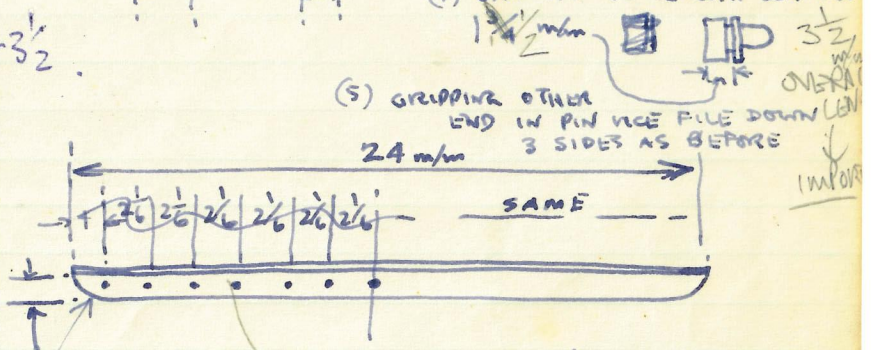 3½
1¾ ½ m/m
3½
m/m
OVERALL
LEN
IMPOR
(5) GRIPPING OTHER
END IN PIN VICE FILE DOWN
3 SIDES AS BEFORE
24 m/m
2⅙ 2⅙ 2⅙ 2⅙ 2⅙ 2⅙ SAME